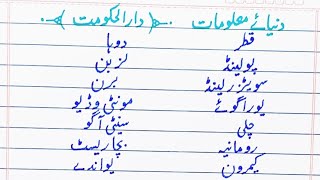 دنیائے معلومات ۔ دارالحکومت ۔
قطر دوہا
پولینڈ لزبن
سویزرلینڈ برن
یوراگوئے مونٹی وڈیو
چلی سینٹی آگو
رومانیہ بخاریسٹ
کیمرون یواندے